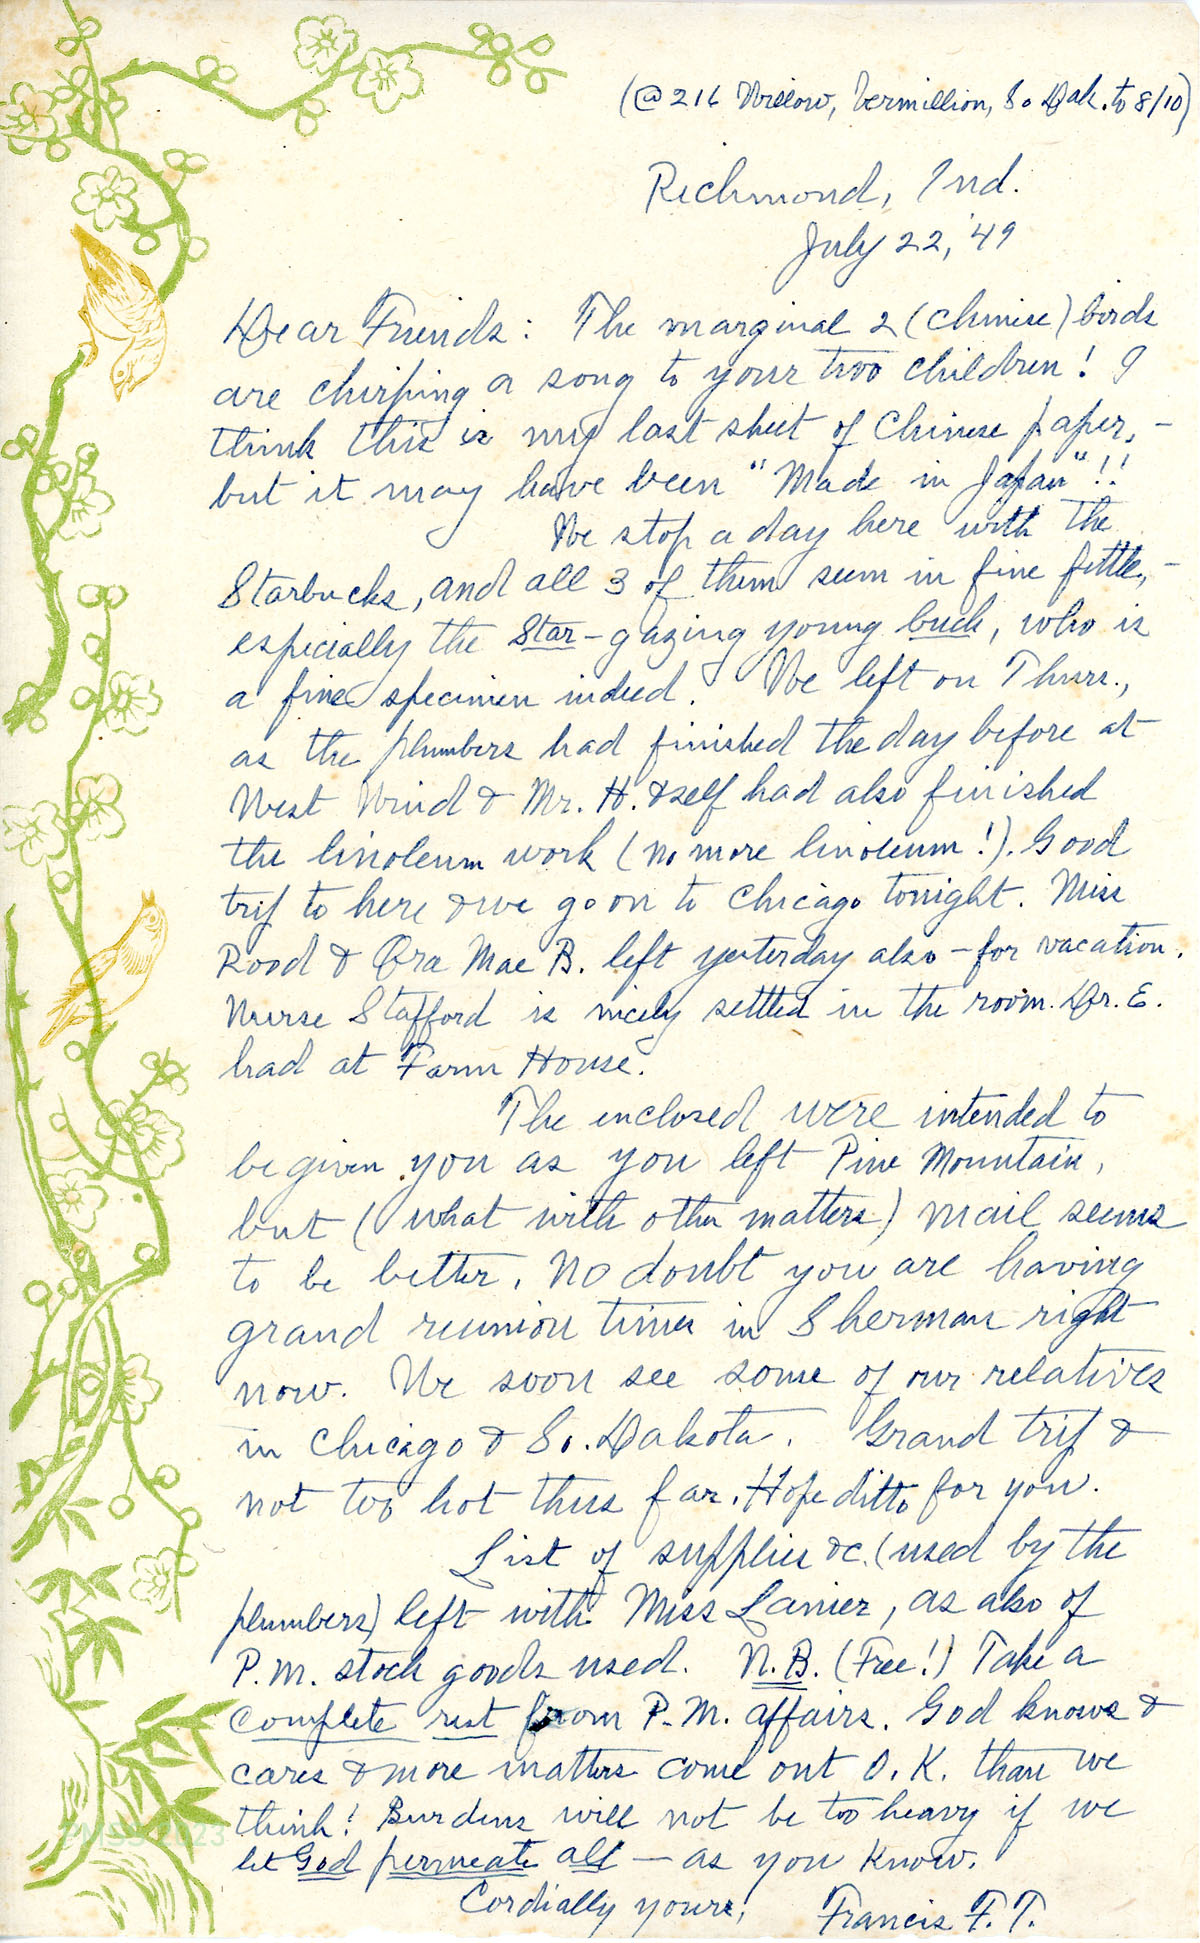 (@ 216 Willow, Vermillion, So Dak. to 8/10)
Richmond, Ind.
July 22, '49
Dear Friends: The marginal 2 (Chinese) birds
are chirping a song to your two children! I
think this is my last sheet of Chinese paper, -
but it may have been "Made in Japan"!!
We stop a day here with the
Starbucks, and all 3 of them seem in fine fettle, -
especially the Star-gazing young buck, who is
a fine specimen indeed. We left on Thurs.,
as the plumbers had finished the day before at
West Wind & Mr. H. & self had also finished
the linoleum work (no more linoleum!). Good
trip to here & we go on to Chicago tonight. Miss
Rood & Ora Mae B. left yesterday also - for vacation.
Nurse Stafford is nicely settled in the room Dr. E.
had at Farm House.
The enclosed were intended to
be given you as you left Pine Mountain,
but (what with other matters) mail seems
to be better. No doubt you are having
grand reunion times in Sherman right
now. We soon see some of our relatives
in Chicago & So. Dakota. Grand trip &
not too hot thus far. Hope ditto for you.
List of supplies &c. (used by the
plumbers) left with Miss Lanier, as also of
P.M. stock goods used. N.B. (Free!) Take a
complete rest from P.M. affairs. God knows &
cares & more matters come out O.K. than we
think! Burdens will not be too heavy if we
let God permeate all — as you know.
Cordially yours, Francis F. T.
PMSS 2023